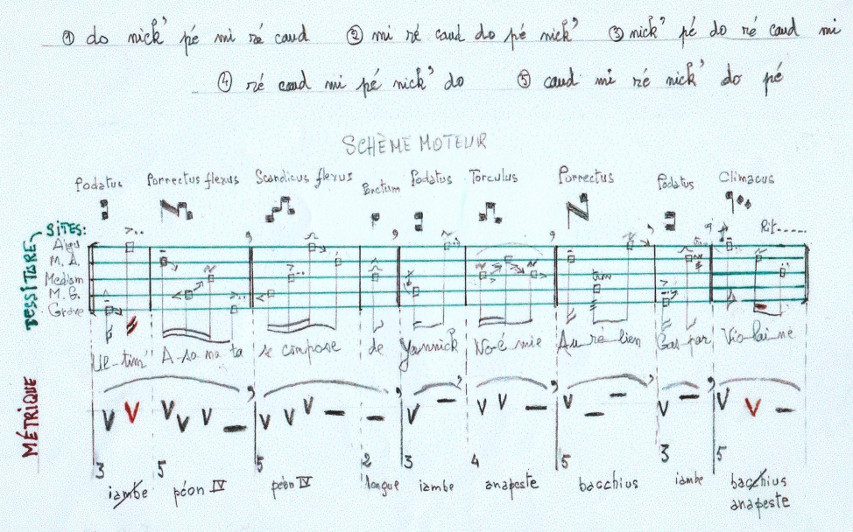 ① do nick' pé mi ré caud ② mi ré caud do pé nick' ③ nick' pé do ré caud mi
④ ré caud mi pé nick' do ⑤ caud mi ré nick' do pé
SCHÈME MOTEUR
Podatus Porrectus flexus Scandicus flexus Podatus Torculus Porrectus Podatus Climacus
SITES: Rit......
TESSITURE
Aigu
M. A.
Medium
M. G.
Grave
Ul-tim" A-so na ta se compose de Yannick No-é-mie Au-ré-lien Gas-par Vio-lai-ne
MÉTRIQUE
3 5 5 2 3 4 5 3 5
iambe péon IV péon IV longue iambe anapeste bacchius iambe bacchius
anapeste